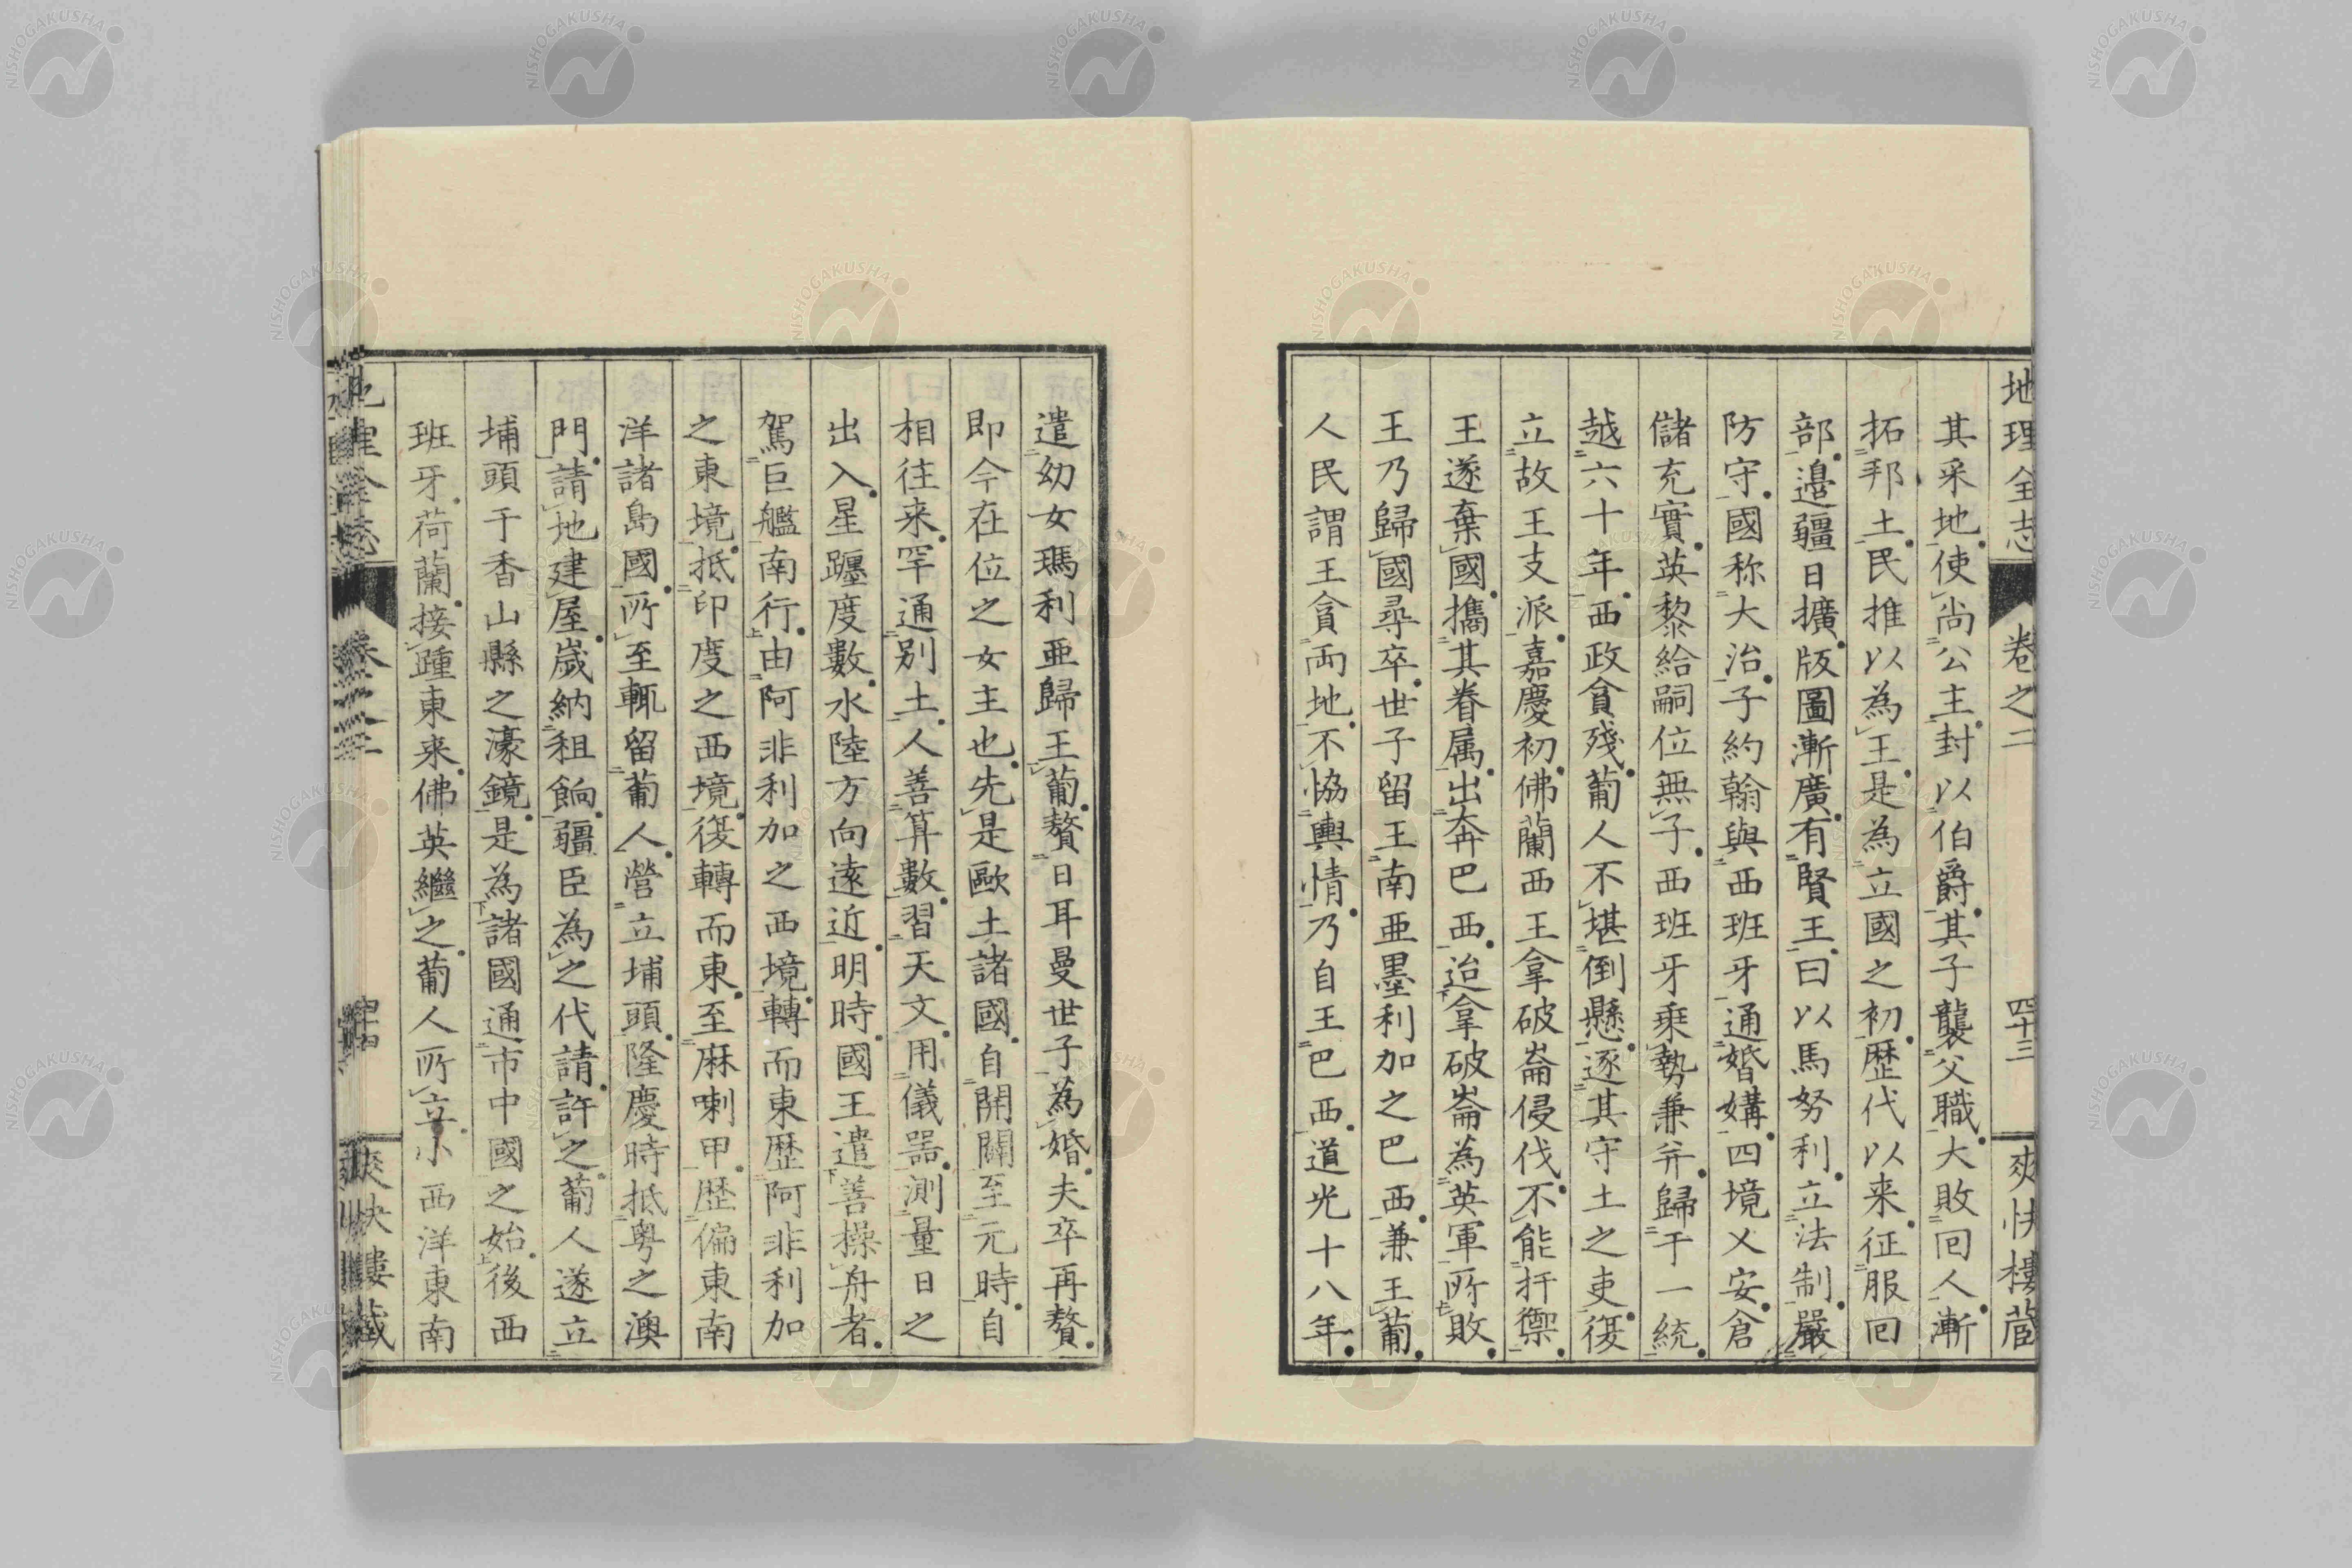 地理全志 卷之二 四十三 爽快樓蔵
其采地使尚公主封以伯爵其子襲父職大敗回人漸
拓邦土民推以為王是為立國之初歷代以来征服回
部邊疆日擴版圖漸廣有賢王曰以馬努利立法制嚴
防守國称大治子約翰與西班牙通婚媾四境乂安倉
儲充實英黎給嗣位無子西班牙乗勢兼并歸于一統
越六十年西政貪殘葡人不堪倒懸逐其守土之吏復
立故王支派嘉慶初佛蘭西王拿破崙侵伐不能扞禦
王遂棄國攜其眷属出奔巴西迨拿破崙為英軍所敗
王乃歸國尋卒世子留王南亜墨利加之巴西兼王葡
人民謂王貪両地不協輿情乃自王巴西道光十八年
遣幼女瑪利亜歸王葡贅日耳曼世子為婚夫卒再贅
即今在位之女主也先是歐土諸國自開闢至元時自
相往来罕通別土人善算數習天文用儀器測量日之
出入星躔度數水陸方向遠近明時國王遣善操舟者
駕巨艦南行由阿非利加之西境轉而東歷阿非利加
之東境抵印度之西境復轉而東至麻喇甲歷偏東南
洋諸島國所至輒留葡人營立埔頭隆慶時抵粤之澳
門請地建屋歲納租餉疆臣為之代請許之葡人遂立
埔頭于香山縣之濠鏡是為諸國通市中國之始後西
班牙荷蘭接踵東来佛英繼之葡人所立小西洋東南
地理全志 卷之二 爽快樓蔵
NISHOGAKUSHA